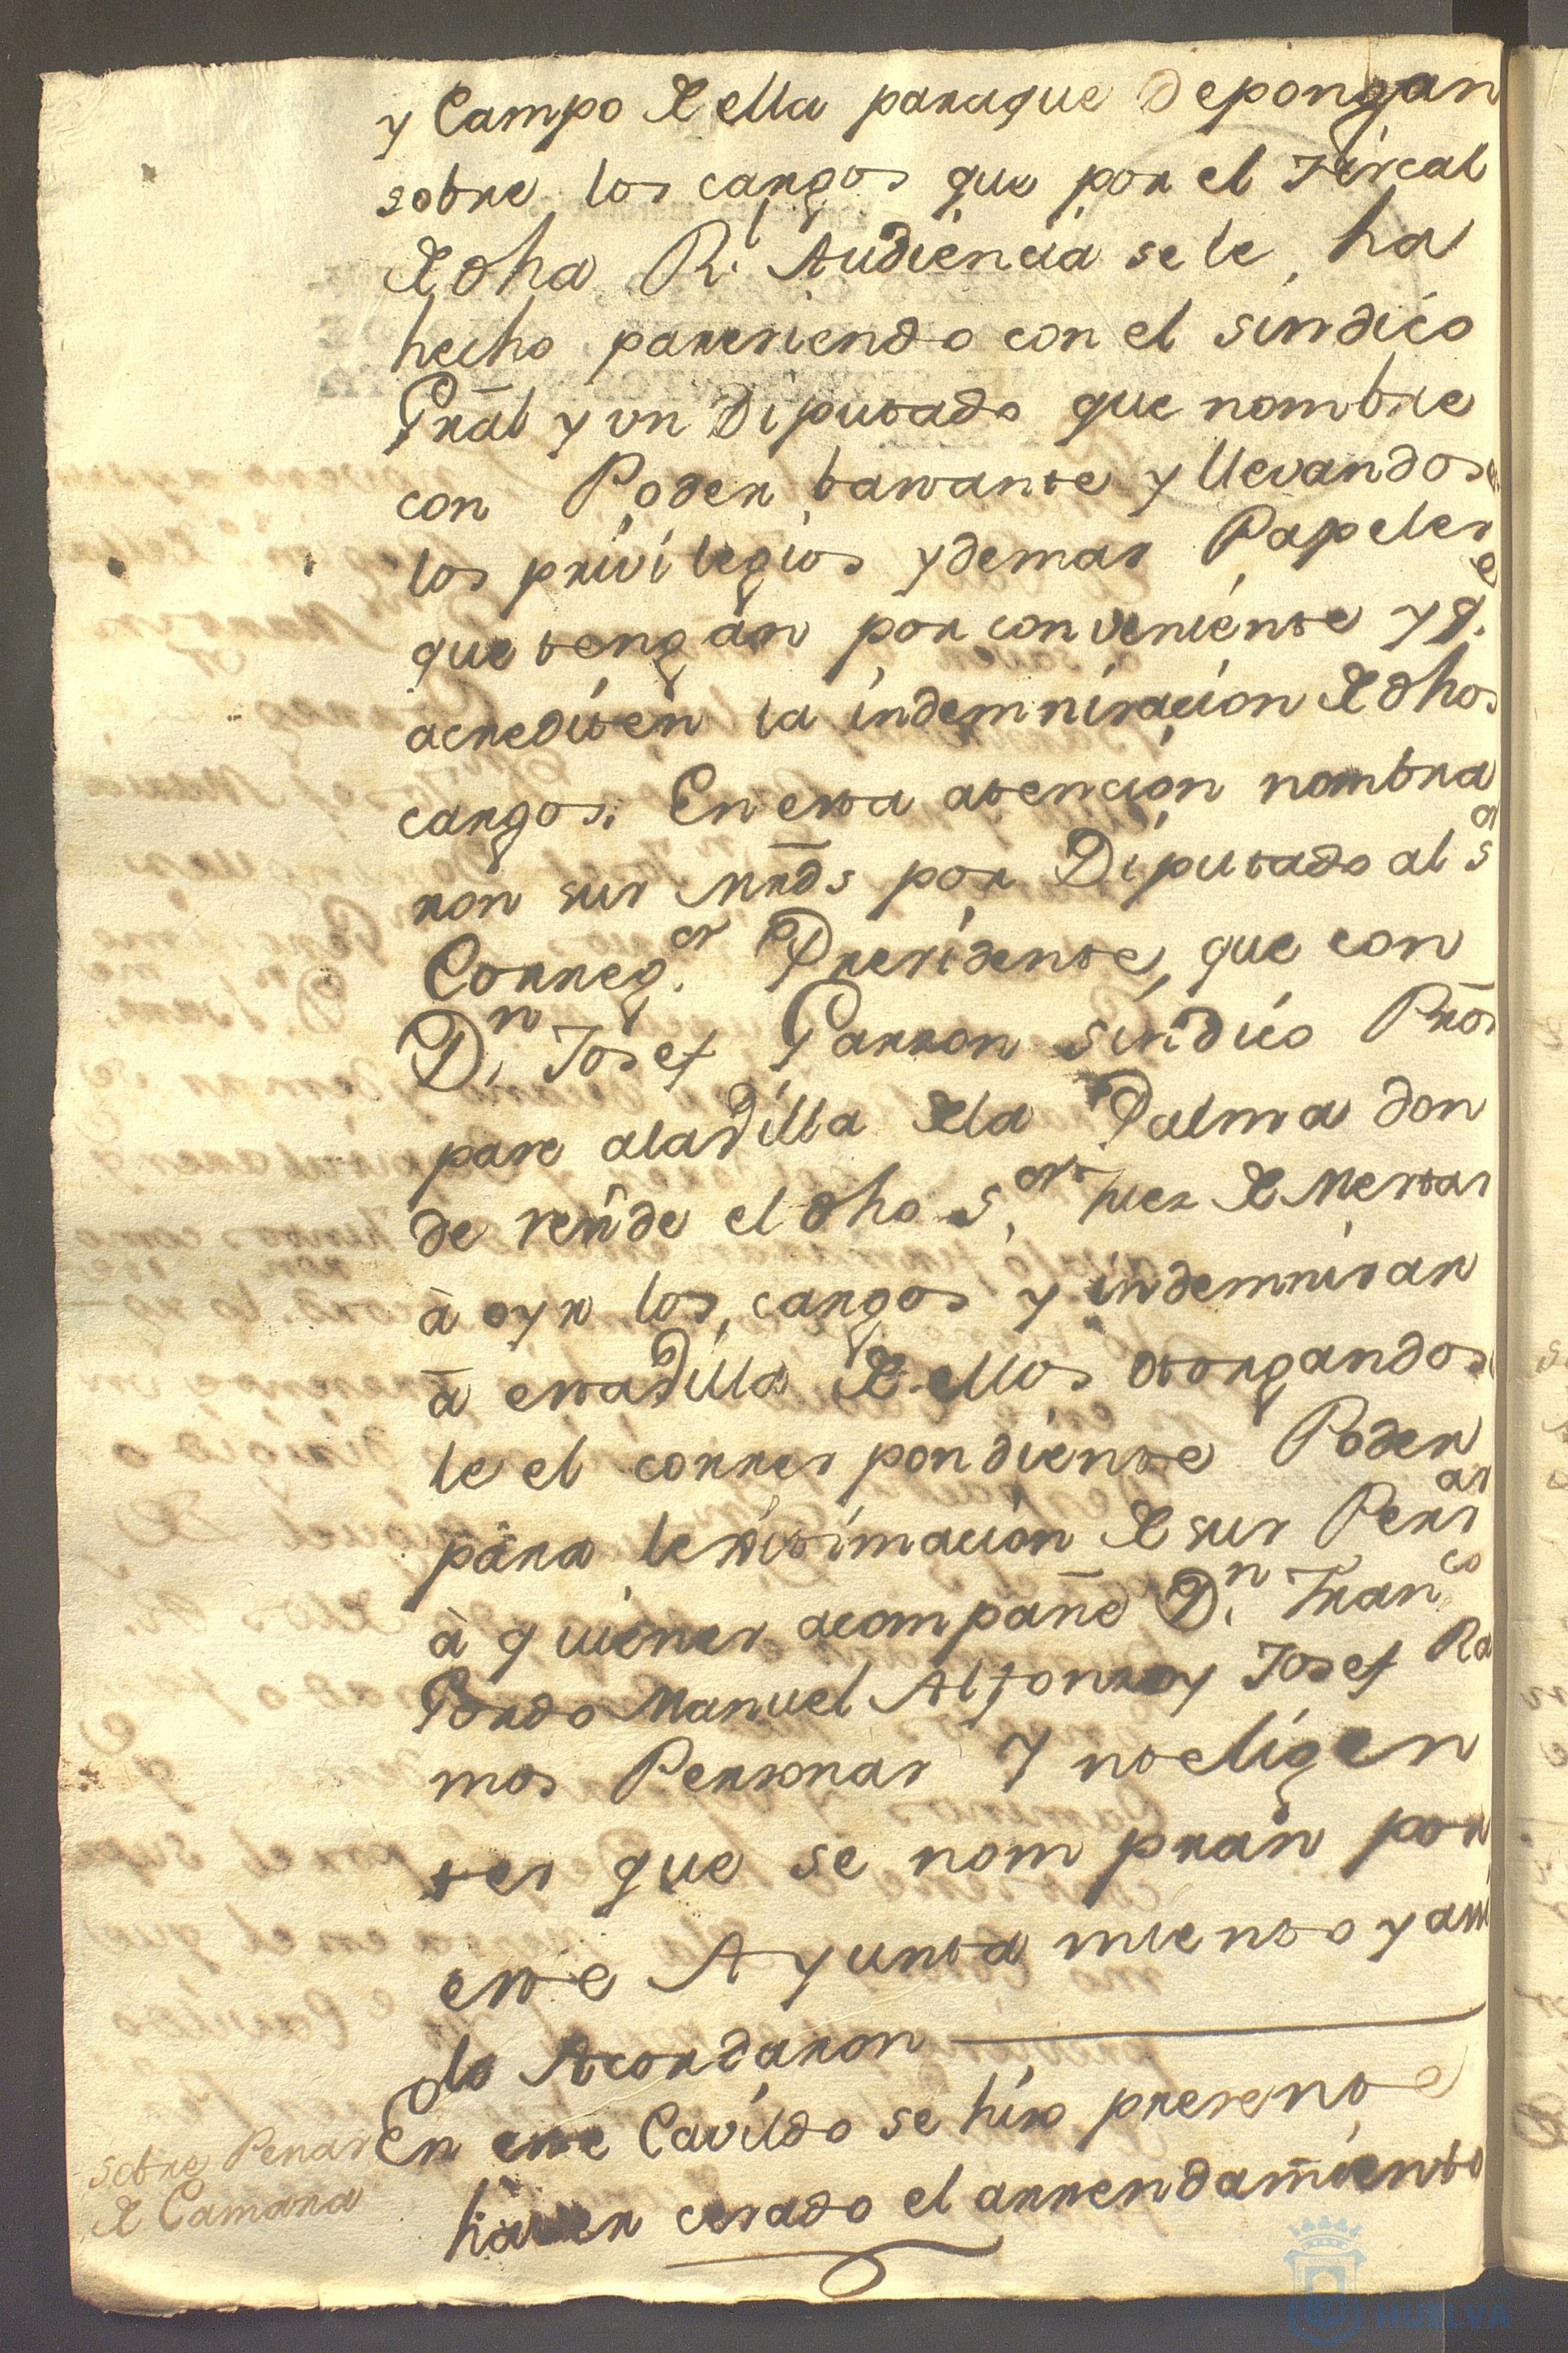 y Campo de ella paraque depongan
sobre los cargos que por el Fiscal
de dha Rl. Audiencia se le ha
hecho pareciendo con el sindico
Gnãl y vn Diputado que nombre
con Poder bastante y llevandose
los privilegios y demas Papeles
que tengan por conveniente y qe.
acrediten la indemnisacion de dhos
cargos. En esta atencion nombra
ron sus mrds por Diputado al Sor
Correg.or Presidente, que con
Dn. Josef Garzon Sindico Prõr
pase ala Villa de la Palma don
de reside el dho S.or Juez de Mestas
à oyr los cargos y indemnisar
à esta Villa de ellos otorgandose
le el correspondiente Poder
para lexitimacion de sus Persas
à quienes acompañe Dn. Franco
Pordo Manuel Alfonso y Josef Ra
mos Personas Ynteligen
tes que se nomprán por
este Ayuntamiento y asi
lo Acordaron
En este Cavildo se hiso presente
haver cesado el arrendamiento
sobre Penas
de Camara
HUELVA